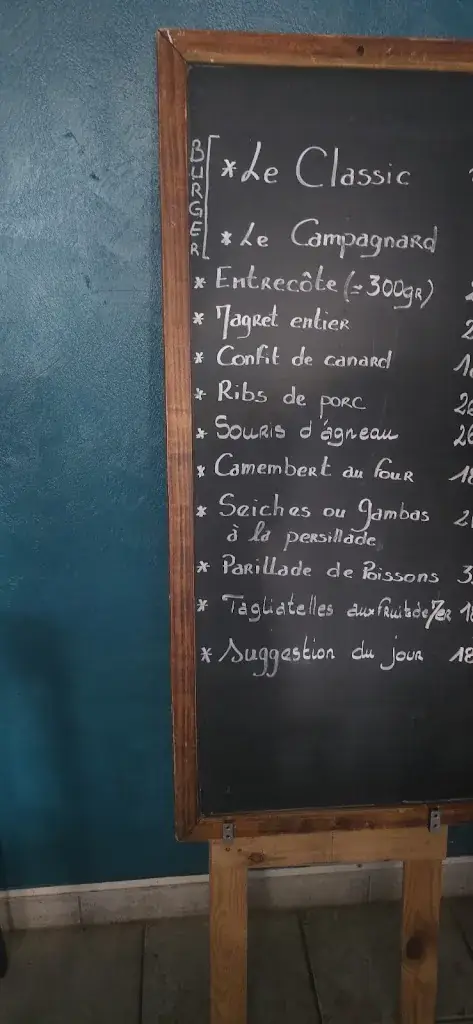 BURGER
* Le Classic
* Le Campagnard
* Entrecôte (≃ 300gr)
* Magret entier 2
* Confit de canard 1
* Ribs de porc 2
* Souris d'agneau 26
* Camembert au four 18
* Seiches ou gambas 2
à la persillade
* Parillade de Poissons 3
* Tagliatelles aux fruits de Mer 18
* Suggestion du jour 18